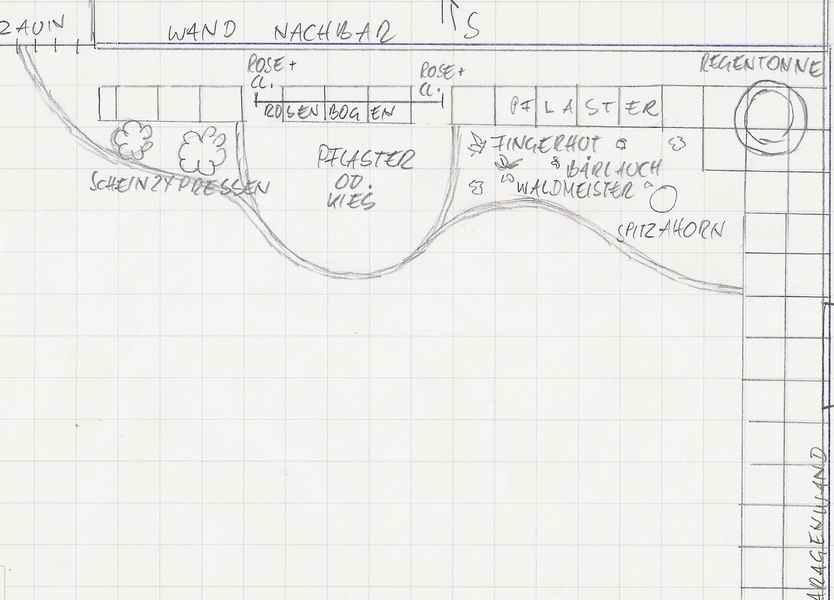 ZAUN
WAND NACHBAR
S
ROSE +
CL.
ROSE +
CL.
REGENTONNE
ROSENBOGEN
PFLASTER
PFLASTER
OD.
KIES
FINGERHUT
BÄRLAUCH
WALDMEISTER
SCHEINZYPRESSEN
SPITZAHORN
GARAGENWAND